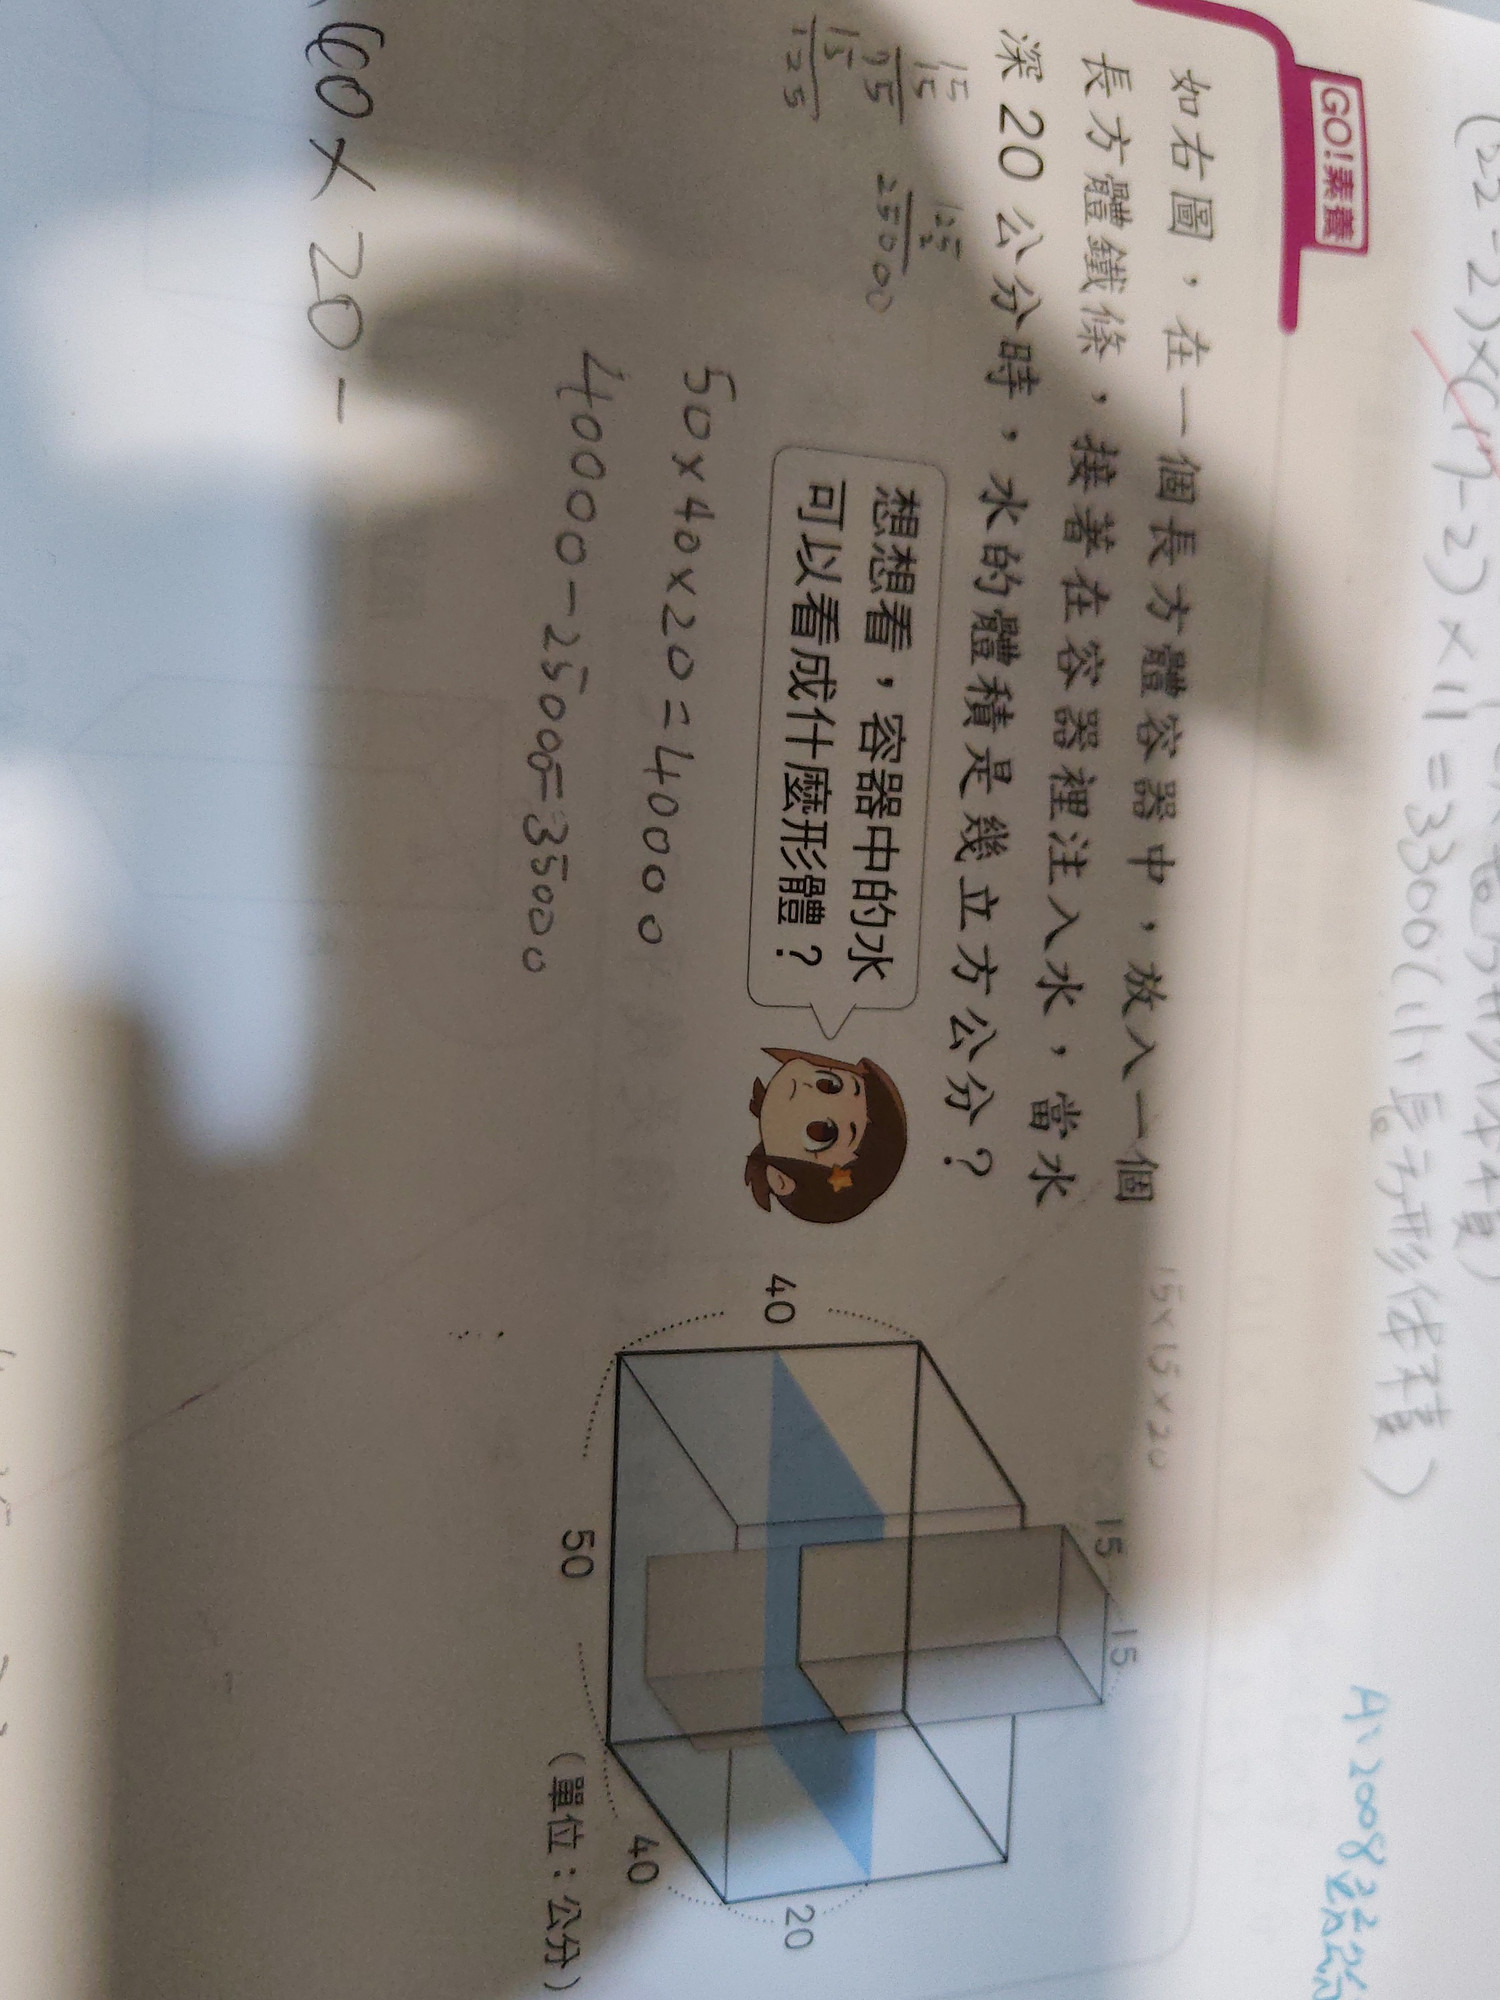 (22-2)×(17-2)×11=3300(小長方形体積)
GO!素養
如右圖，在一個長方體容器中，放入一個
長方體鐵條，接著在容器裡注入水，當水
深20公分時，水的體積是幾立方公分？
15×15×20
想想看，容器中的水
可以看成什麼形體？
15
15
75
15
125
125
2
2500
50×40×20=40000
40000-2500=35000
60×20-
40
15
15
50
40
20
(單位：公分)